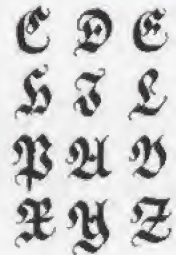 C D E
H I L
P U V
X Y Z